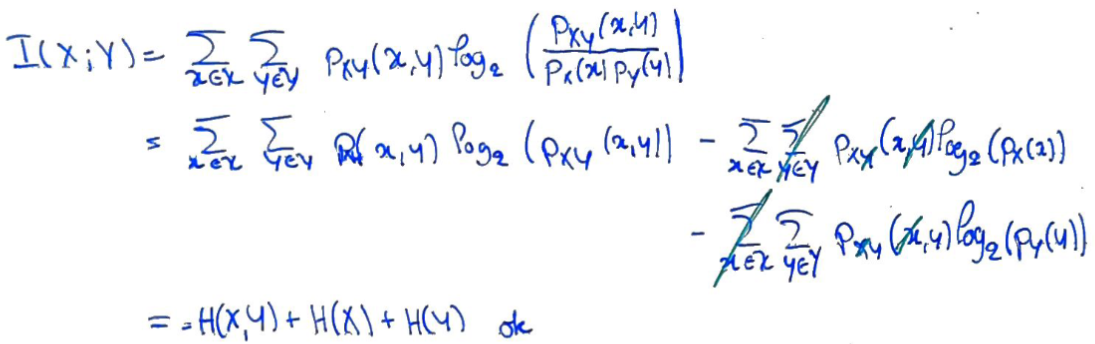 I(X;Y) = ∑_{x∈X} ∑_{y∈Y} P_{XY}(x,y) log₂ (P_{XY}(x,y) / P_X(x) P_Y(y))
= ∑_{x∈X} ∑_{y∈Y} P(x,y) log₂ (P_{XY}(x,y)) - ∑_{x∈X} ∑_{y∈Y} P_{XY}(x,y) log₂ (P_X(x))
- ∑_{x∈X} ∑_{y∈Y} P_{XY}(x,y) log₂ (P_Y(y))
= -H(X,Y) + H(X) + H(Y) ok